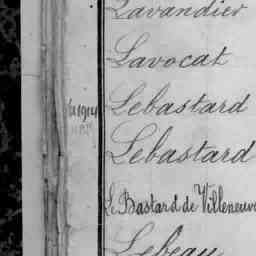 Lavandier
Lavocat
Lebastard
Lebastard
Le Bastard de Villeneuve
Lebeau